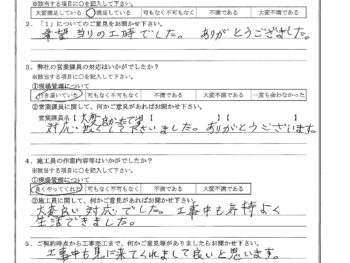 ※該当する項目に○を記入して下さい。
大変満足している 満足している 可もなく不可もなく 不満である 大変不満である
2.「1」についてのご意見をお聞かせ下さい。
希望通りの工事でした。ありがとうございました。
3. 弊社の営業課員の対応はいかがでしたか?
※該当する項目に○を記入して下さい。
①現場管理について
行き届いていた 可もなく不可もなく 不満である 大変不満である 一度も会わなかった
②営業課員に関して、何かご意見があればお聞かせ下さい。
営業課員名【 】【 】
対応 して下さいました。ありがとうございます。
4. 施工員の作業内容等はいかがでしたか?
※該当する項目に○を記入して下さい。
①現場管理について
良くやってくれた 可もなく不可もなく 不満である 大変不満である
②施工員に関して、何かご意見があればお聞かせ下さい。
大変良い対応でした。工事中も気持よく
生活できました。
5. ご契約時点から工事完工まで、何かご意見等がありましたらお聞かせ下さい。
工事中も見に来てくれまして良いと思います。